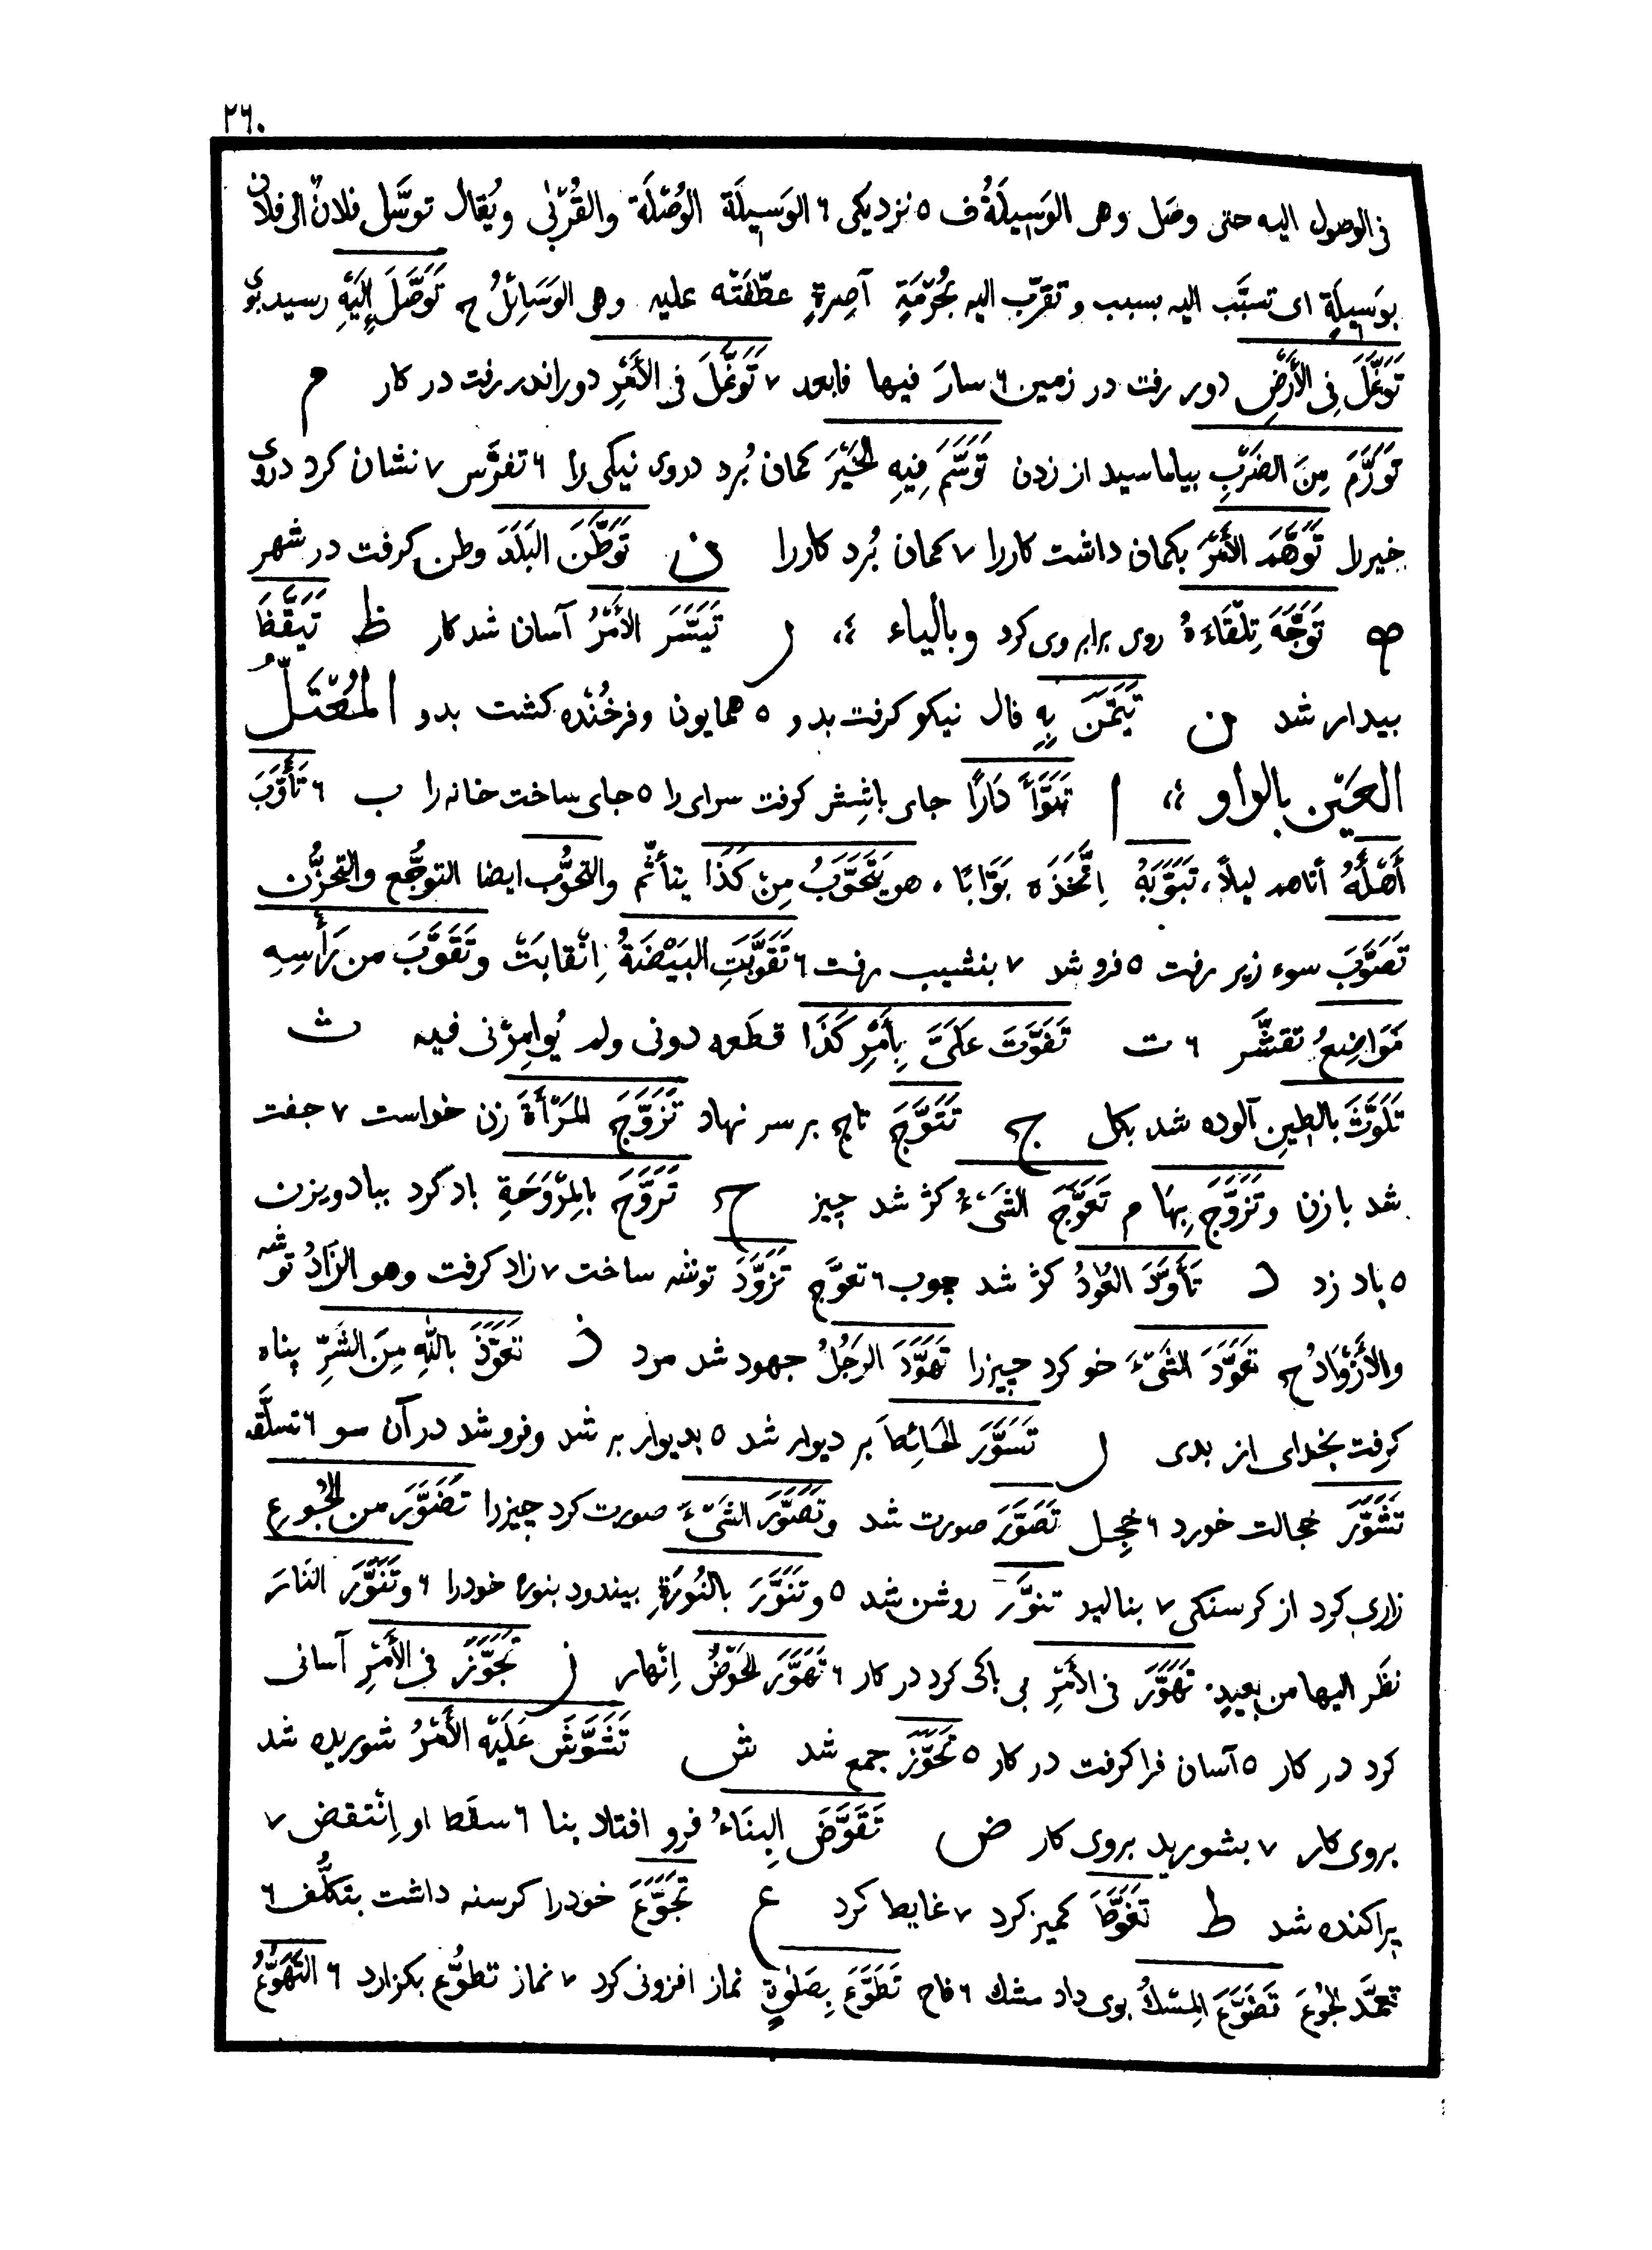 ٢٦٠
فى الوصول اليه حتى وصَل وهى الوَسِيلَةُ ف ٥ نزديكى ٦ الوَسِيلَة الوُصْلَة والقُرْبٰى ويُقال توسَّل فلانٌ الى فلان
بوَسِيلَةٍ اى تسبَّب اليه بسبب وتقرّب اليه بحُرْمَةٍ آصِرةٍ عطّفَتْه عليه وهى الوَسَائِلُ ح تَوَصَّلَ إِلَيْهِ رسيد بوى
تَوَغَّلَ فِى الأَرْضِ دور رفت در زمين ٦ سارَ فيها فابعد ٧ تَوَغَّلَ فى الأَمْرِ دور اندر رفت در كار م
تَوَرَّمَ مِنَ الضَرْبِ بياماسيد از زدن تَوَسَّمَ فِيهِ الخَيْرَ كمان بُرد دروى نيكى را ٦ تفرَّس ٧ نشان كرد دروى
خيررا تَوَهَّمَ الأَمْرَ بكمان داشت كاررا ٧ كمان بُرد كاررا ن تَوَطَّنَ البَلَدَ وطن كرفت در شهر
ه تَوَجَّهَ تِلْقَاءَهُ روى برابر وى كرد وبالياء ؛ ر تَيَسَّرَ الأَمْرُ آسان شد كار ظ تَيَقَّظَ
بيدار شد ن تَيَمَّنَ بِهِ فال نيكو كرفت بدو ٥ همايون وفرخُنده كشت بدو المُعْتَلُّ
العَيْن بالواو ؛ ا تَبَوَّأَ دَارًا جاى باشِش كرفت سراى را ٥ جاى ساخت خانه را ب ٦ تَأَوَّبَ
أَهْلَهُ أتاهم ليلاً، تَبَوَّبَهُ اِتَّخَذَه بَوَّابًا، هو يَتَحَوَّبُ مِنْ كَذَا يتأثّم والتحَوُّب ايضا التوجُّع والتحزُّن
تَصَوَّبَ سوء زير رفت ٥ فرو شد ٧ بنشيب رفت ٦ تَقَوَّبَتِ البَيْضَةُ اِنْقابَتْ وتَقَوَّبَ من رَأْسِهِ
مَوَاضِعُ تقشَّر ٦ ت تَفَوَّتَ عَلَىَّ بِأَمْرِ كَذَا قطَعه دونى ولم يُوامِرْنى فيه ث
تَلَوَّثَ بالطِينِ آلوده شد بكل ج تَتَوَّجَ تاج بر سر نهاد تَزَوَّجَ المَرْأَةَ زن خواست ٧ جفت
شد با زن وتَزَوَّجَ بِهَا م تَعَوَّجَ الشَىْءُ كژ شد چيز ح تَرَوَّحَ بالمِرْوَحَةِ باد كرد ببادويزن
٥ باد زد د تَأَوَّدَ العُودُ كژ شد چوب ٦ تعوَّج تَزَوَّدَ توشه ساخت ٧ زاد كرفت وهو الزَادُ توشه
والأَزْوَادُ ح تَعَوَّدَ الشَىْءَ خو كرد چيزرا تَهَوَّدَ الرَجُلُ جهود شد مرد ذ تَعَوَّذَ بِاللّٰهِ مِنَ الشَرِّ پناه
كرفت بخداى از بدى ر تَسَوَّرَ الحَائِطَ بر ديوار شد ٥ بديوار بر شد وفرو شد در آن سو ٦ تسلَّقه
تَشَوَّرَ خجالت خورد ٦ خجِل تَصَوَّرَ صورت شد وتَصَوَّرَ الشَىْءَ صورت كرد چيزرا تَضَوَّرَ من الجُوعِ
زارى كرد از كرسنكى ٧ بناليد تنوَّرَ روشن شد ٥ وتَنَوَّرَ بالنُورَةِ بيندود بنوره خودرا ٦ وتَنَوَّرَ النَارَ
نظَر اليها من بعيدٍ. تَهَوَّرَ فى الأَمْرِ بى باكى كرد در كار ٦ تَهَوَّرَ الحَوْضُ اِنْهار ز تَجَوَّزَ فى الأَمْرِ آسانى
كرد در كار ٥ آسان فرا كرفت در كار ٥ تَحَوَّزَ جمع شد ش تَشَوَّشَ عَلَيْهِ الأَمْرُ شوريده شد
بروى كار ٧ بشوريد بروى كار ض تَقَوَّضَ البِنَاءُ فرو افتاد بنا ٦ سقَط او اِنْتقض ٧
پراكنده شد ط تَغَوَّطَ كميز كرد ٧ غايط كرد ع تَجَوَّعَ خودرا كرسنه داشت بتكلُّف ٦
تعمَّد الجُوعَ تَضَوَّعَ المِسْكُ بوى داد مشك ٦ فاح تَطَوَّعَ بِصَلٰوةٍ نماز افزونى كرد ٧ نماز تطوُّع بكزارد ٦ التَهَوُّعُ